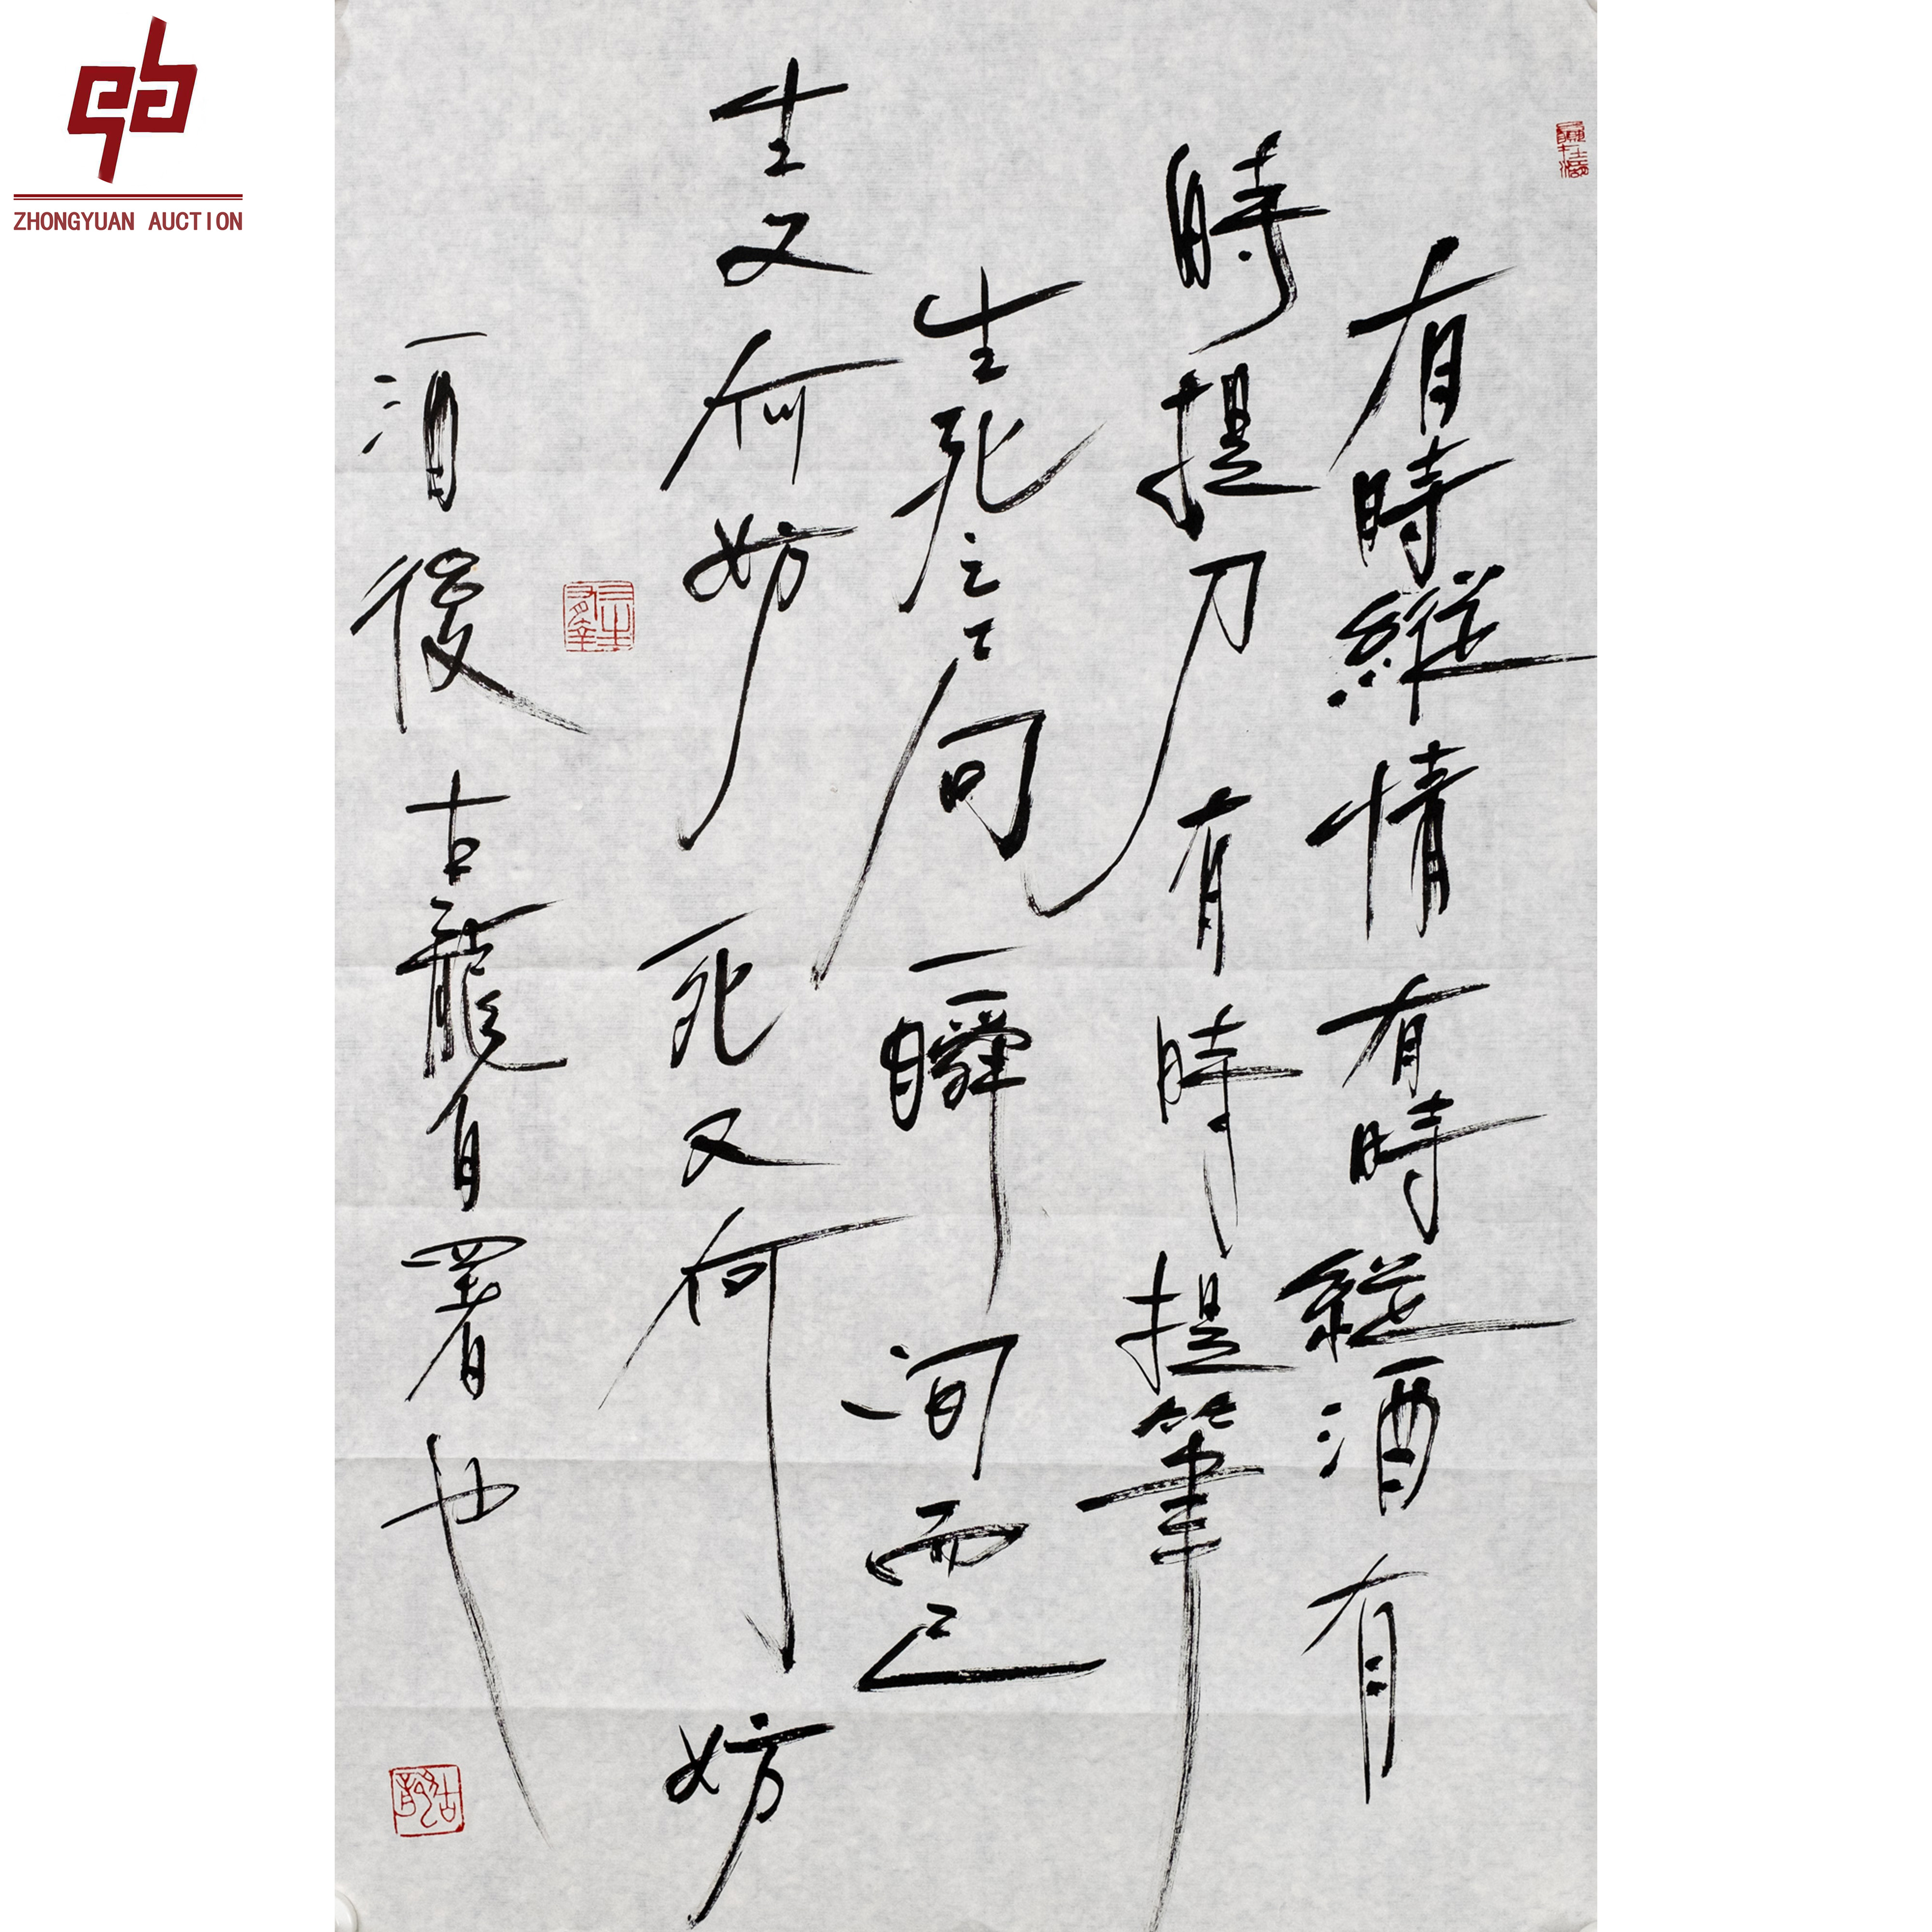 ZHONGYUAN AUCTION
有時縱情有時縱酒有
時提刀有時提筆
生死之间一瞬间而已
生又何妨死又何妨
酒後古龍自署也
古龍